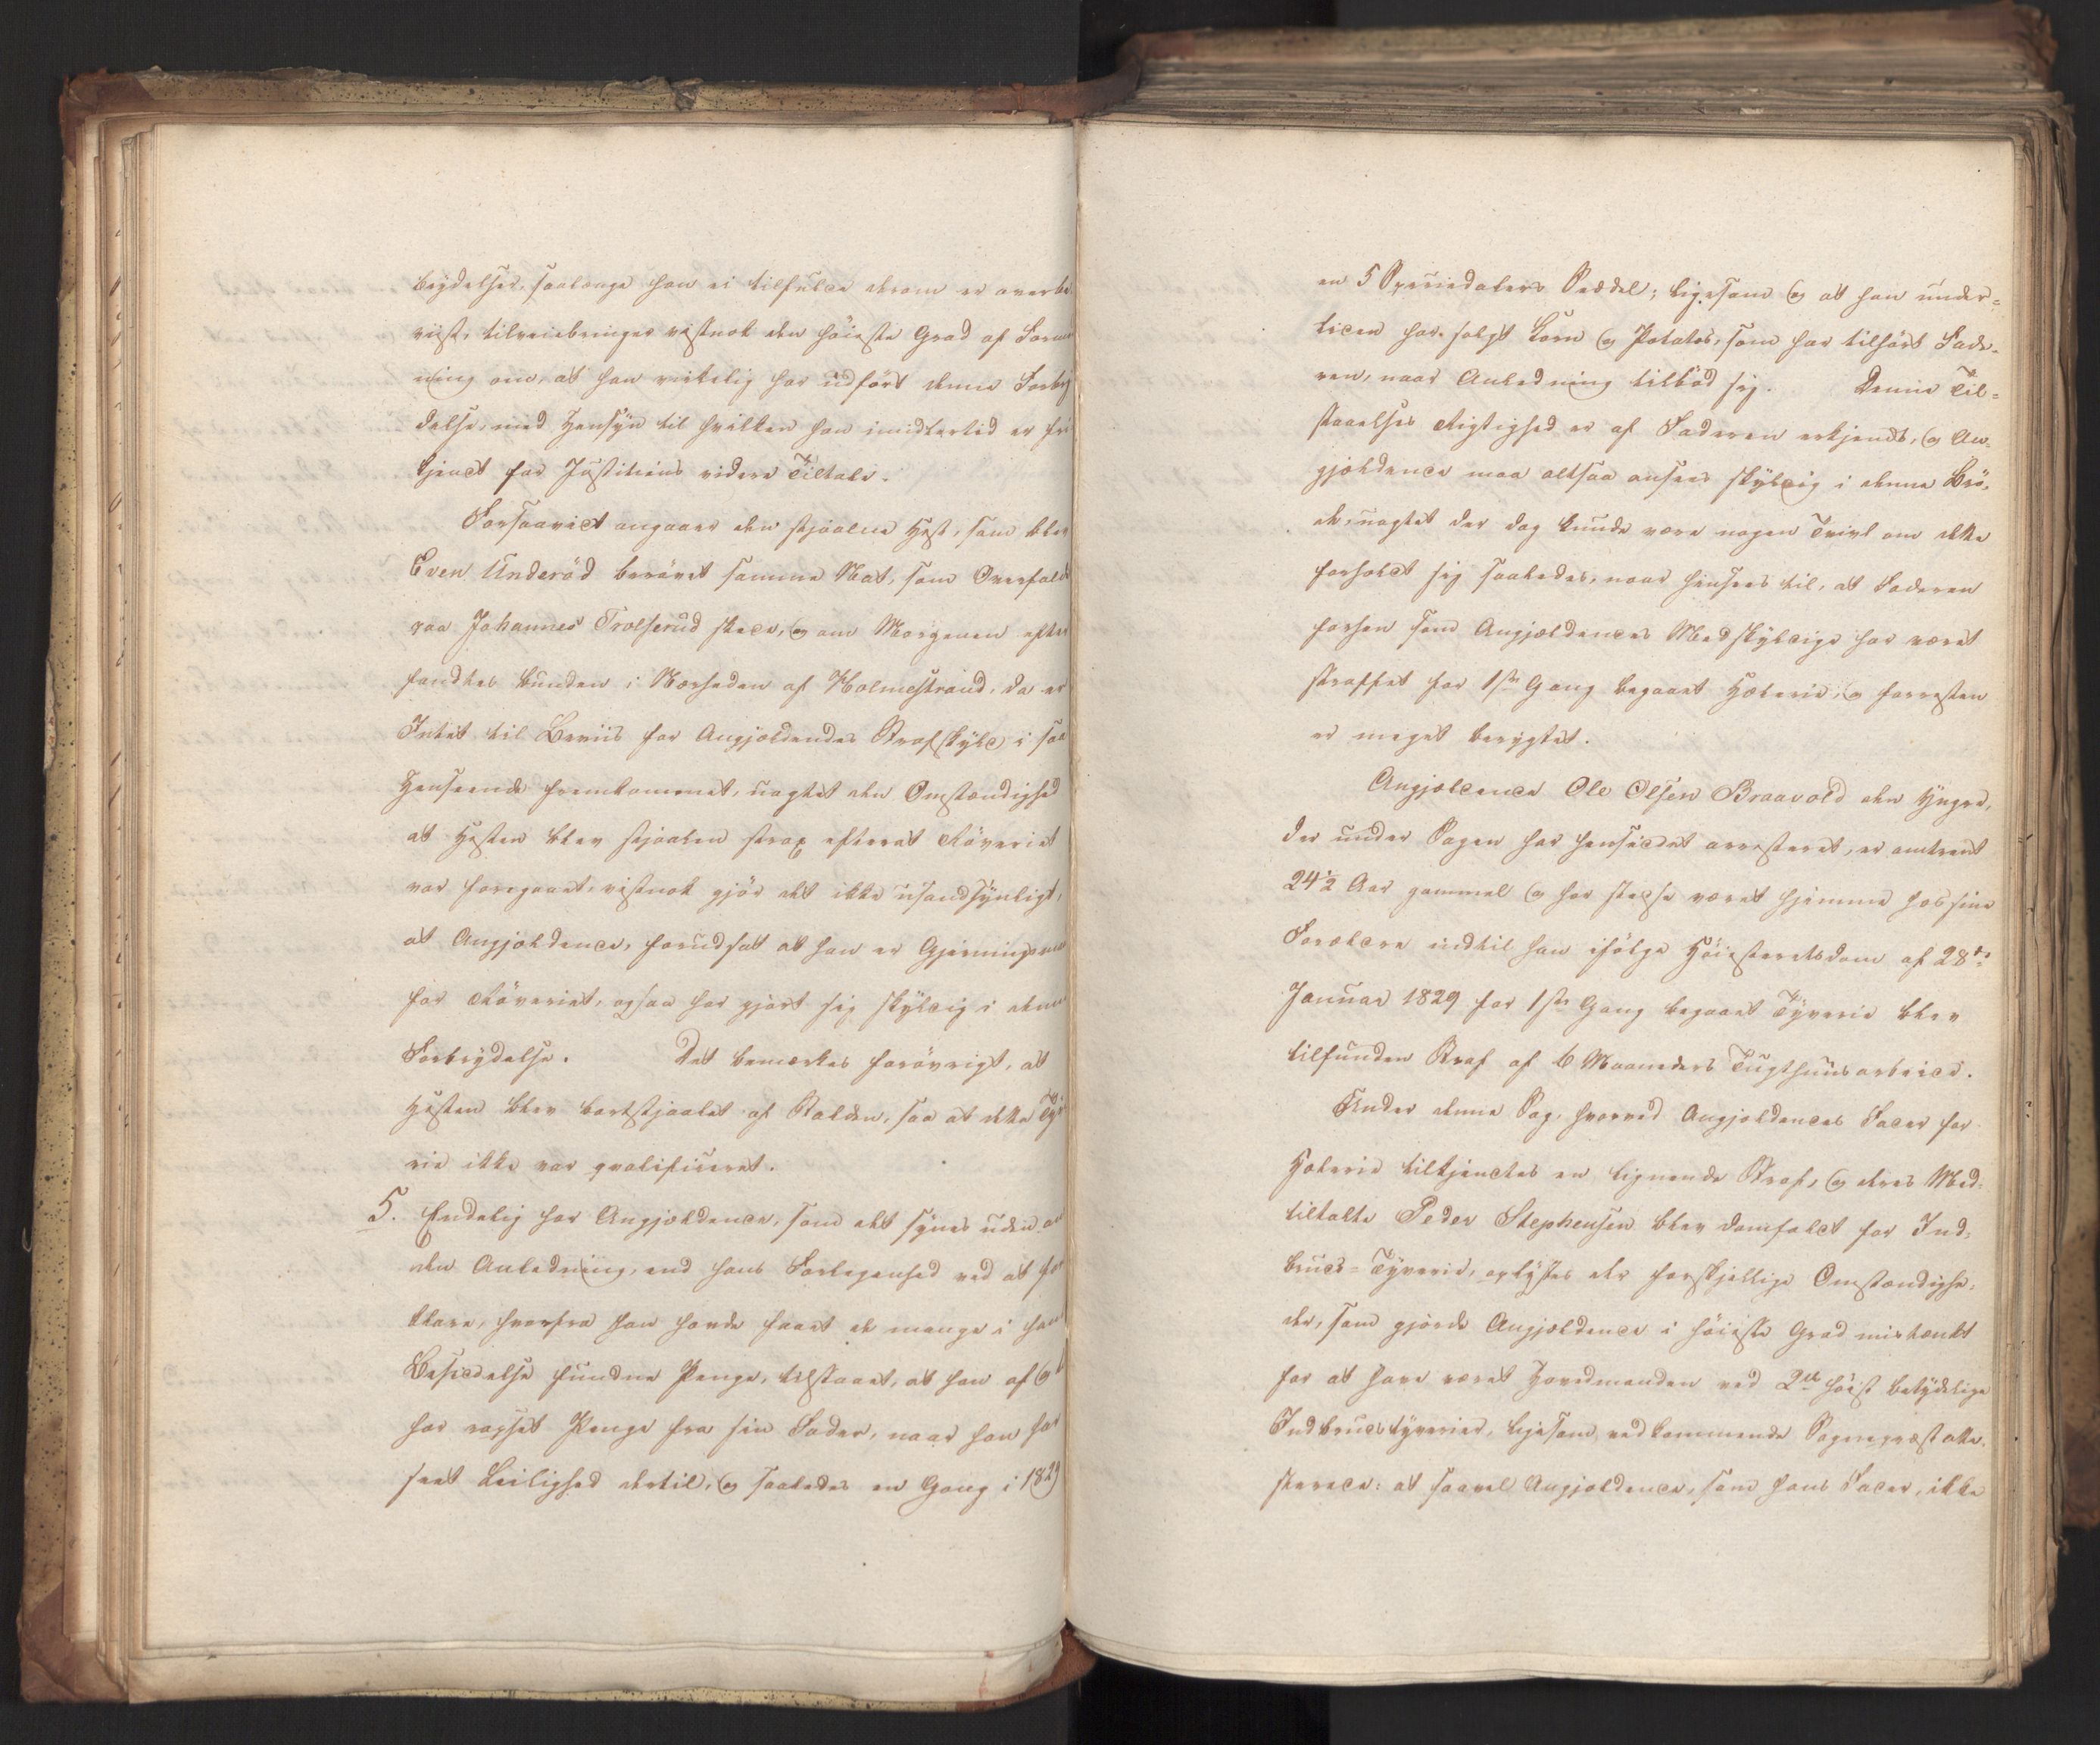 brydelser, saalænge han ei tilfulde derom er overbe
viist, tilveiebringer vistnok den höieste Grad af Form
ning om, at han virkelig har udfört denne Forbry
delse, med Hensyn til hvilken han imidlertid er fri
kjendt for Justitiens videre Tiltale.
Forsaavidt angaaer den stjaalne Hest, som blev
Even Underöd berövet samme Nat, som Overfaldt
paa Johannes Trolserud skede, og om Morgenen efter
fandtes bunden i Nærheden af Holmestrand, da er
Intet til Beviis for Angjældendes Strafskyld i saa
Henseende fremkommet, uagtet den Omstændighed
at Hesten blev stjaalen strax efterat Röveriet
var foregaaet, vistnok gjör det ikke usandsynligt,
at Angjældende, forudsat at han er Gjerningsma
for Röveriet, ogsaa har gjort sig skyldig i denne
Forbrydelse. Det bemærkes forövrigt, at
Hesten blev bortstjaalet af Stalden, saa at dette Ty
rie ikke var qvalificeret.
5. Endelig har Angjældende, som det synes uden an
den Anledning, end hans Forlegenhed ved at for
klare, hvorfra han havde faaet de mange i hans
Besiddelse fundne Penge, tilstaaet, at han af og til
har rapset Penge fra sin Fader, naar han har
seet Leilighed dertil, og saaledes en Gang i 1829
en 5 Speciedalers Seddel; ligesom og at han under-
tiden har solgt Korn og Potatos, som har tilhört Fade-
ren, naar Anledning tilböd sig. Denne Til-
staaelses Rigtighed er af Faderen erkjendt, og An-
gjældende maa altsaa ansees skyldig i denne Brö-
de, uagtet der dog kunde være nogen Tvivl om dette
forholdt sig saaledes, naar hensees til, at Faderen
forhen som Angjældendes Medskyldige har været
straffet for 1ste Gang begaaet Hæleri, og forresten
er meget berygtet.
Angjældende Ole Olsen Braavold den Yngre,
der under Sagen har hensiddet arresteret, er omtrent
24½ Aar gammel og har stedse været hjemme hos sine
Forældre indtil han ifölge Höiesteretsdom af 28de
Januar 1829 for 1ste Gang begaaet Tyverie blev
tilfunden Straf af 6 Maaneders Tugthuusarbeide.
Under denne Sag, hvorved Angjældendes Fader for
Hælerie tilkjendtes en lignende Straf, og deres Med-
tiltalte Peder Stephensen blev domfældt for Ind-
bruds-Tyverie, oplystes der forskjellige Omstændighe-
der, som gjorde Angjældende i höieste Grad mistænkt
for at have været Hovedmanden ved 2de höist betydelige
Indbrudstyverier, ligesom vedkommende Sognepræst atte-
sterede: at saavel Angjældende, som hans Fader, ikke